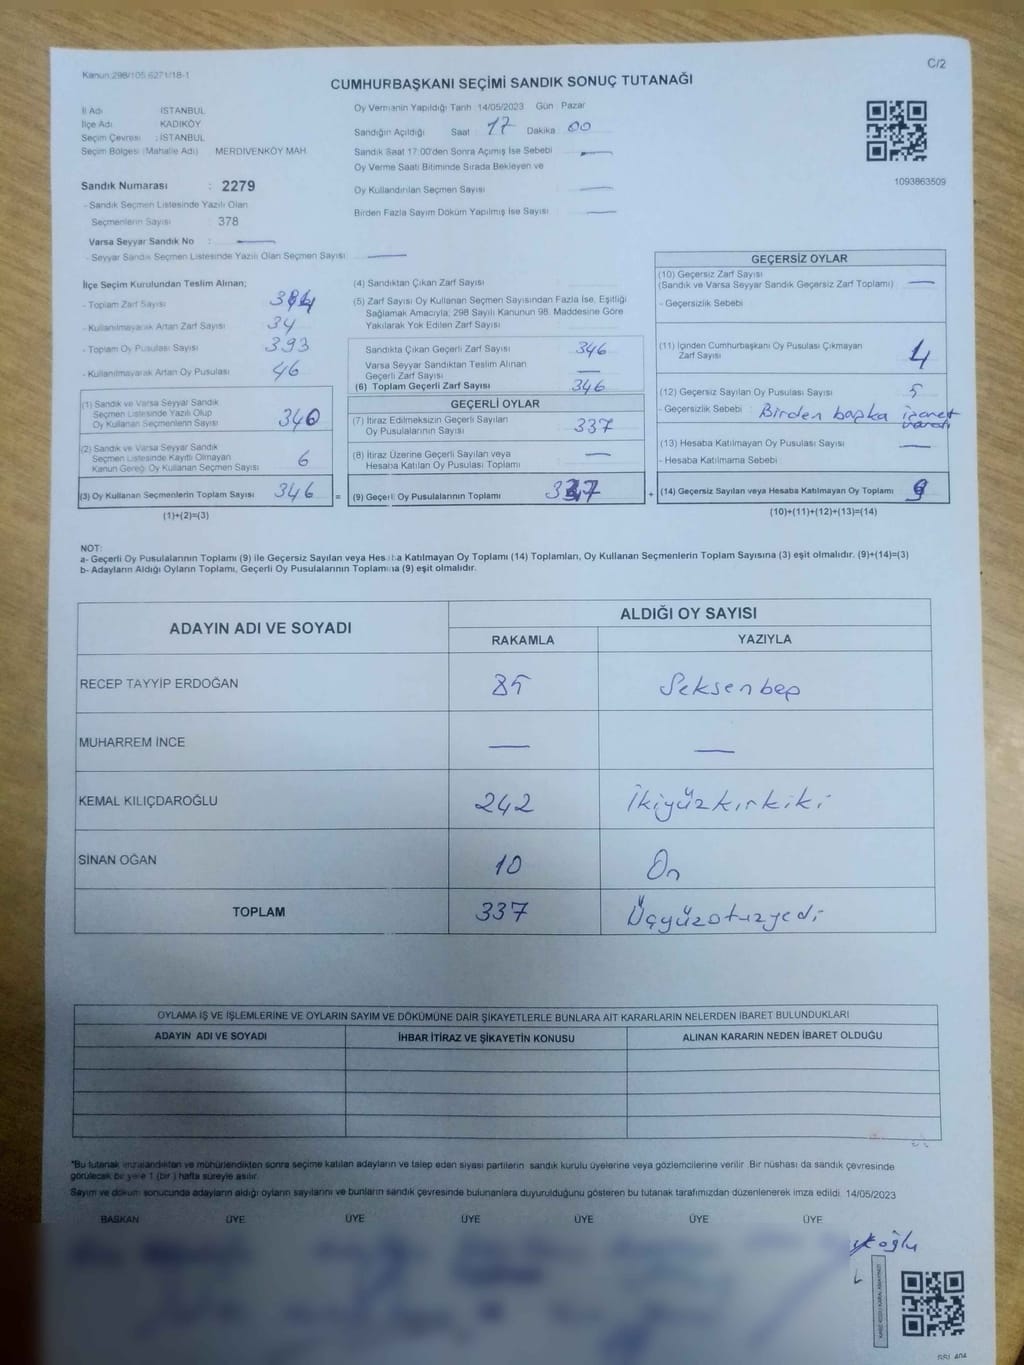 C/2
Kanun:298/105 6271/18-1
CUMHURBAŞKANI SEÇİMİ SANDIK SONUÇ TUTANAĞI
İl Adı : İSTANBUL
İlçe Adı : KADIKÖY
Seçim Çevresi : İSTANBUL
Seçim Bölgesi (Mahalle Adı) MERDİVENKÖY MAH.
Oy Vermenin Yapıldığı Tarih 14/05/2023 Gün : Pazar
Sandığın Açıldığı Saat : 17 Dakika 00
Sandık Saat 17:00'den Sonra Açımış İse Sebebi —
Oy Verme Saati Bitiminde Sırada Bekleyen ve
Oy Kullandırılan Seçmen Sayısı —
Birden Fazla Sayım Döküm Yapılmış İse Sayısı —
1093863509
Sandık Numarası : 2279
- Sandık Seçmen Listesinde Yazılı Olan
Seçmenlerin Sayısı : 378
Varsa Seyyar Sandık No : —
- Seyyar Sandık Seçmen Listesinde Yazılı Olan Seçmen Sayısı: —
İlçe Seçim Kurulundan Teslim Alınan;
- Toplam Zarf Sayısı
- Kullanılmayarak Artan Zarf Sayısı 34
- Toplam Oy Pusulası Sayısı 393
- Kullanılmayarak Artan Oy Pusulası 46
(1) Sandık ve Varsa Seyyar Sandık
Seçmen Listesinde Yazılı Olup
Oy Kullanan Seçmenlerin Sayısı 340
(2) Sandık ve Varsa Seyyar Sandık
Seçmen Listesinde Kayıtlı Olmayan
Kanun Gereği Oy Kullanan Seçmen Sayısı 6
(3) Oy Kullanan Seçmenlerin Toplam Sayısı 346 =
(1)+(2)=(3)
(4) Sandıktan Çıkan Zarf Sayısı —
(5) Zarf Sayısı Oy Kullanan Seçmen Sayısından Fazla İse, Eşitliği
Sağlamak Amacıyla; 298 Sayılı Kanunun 98. Maddesine Göre
Yakılarak Yok Edilen Zarf Sayısı
Sandıkta Çıkan Geçerli Zarf Sayısı 346
Varsa Seyyar Sandıktan Teslim Alınan
Geçerli Zarf Sayısı —
(6) Toplam Geçerli Zarf Sayısı 346
GEÇERLİ OYLAR
(7) İtiraz Edilmeksizin Geçerli Sayılan
Oy Pusulalarının Sayısı 337
(8) İtiraz Üzerine Geçerli Sayılan veya
Hesaba Katılan Oy Pusulası Toplamı —
(9) Geçerli Oy Pusulalarının Toplamı 337 +
GEÇERSİZ OYLAR
(10) Geçersiz Zarf Sayısı
(Sandık ve Varsa Seyyar Sandık Geçersiz Zarf Toplamı) —
- Geçersizlik Sebebi
(11) İçinden Cumhurbaşkanı Oy Pusulası Çıkmayan
Zarf Sayısı 4
(12) Geçersiz Sayılan Oy Pusulası Sayısı 5
- Geçersizlik Sebebi : Birden başka işaret
(13) Hesaba Katılmayan Oy Pusulası Sayısı —
- Hesaba Katılmama Sebebi
(14) Geçersiz Sayılan veya Hesaba Katılmayan Oy Toplamı 9
(10)+(11)+(12)+(13)=(14)
NOT:
a- Geçerli Oy Pusulalarının Toplamı (9) ile Geçersiz Sayılan veya Hesaba Katılmayan Oy Toplamı (14) Toplamları, Oy Kullanan Seçmenlerin Toplam Sayısına (3) eşit olmalıdır. (9)+(14)=(3)
b- Adayların Aldığı Oyların Toplamı, Geçerli Oy Pusulalarının Toplamına (9) eşit olmalıdır.
ADAYIN ADI VE SOYADI ALDIĞI OY SAYISI
RAKAMLA YAZIYLA
RECEP TAYYİP ERDOĞAN 85 Seksenbeş
MUHARREM İNCE — —
KEMAL KILIÇDAROĞLU 242 İkiyüzkırkiki
SİNAN OĞAN 10 On
TOPLAM 337 Üçyüzotuzyedi
OYLAMA İŞ VE İŞLEMLERİNE VE OYLARIN SAYIM VE DÖKÜMÜNE DAİR ŞİKAYETLERLE BUNLARA AİT KARARLARIN NELERDEN İBARET BULUNDUKLARI
ADAYIN ADI VE SOYADI İHBAR İTİRAZ VE ŞİKAYETİN KONUSU ALINAN KARARIN NEDEN İBARET OLDUĞU
*Bu tutanak imzalandıktan ve mühürlendikten sonra seçime katılan adayların ve talep eden siyasi partilerin sandık kurulu üyelerine veya gözlemcilerine verilir. Bir nüshası da sandık çevresinde
görülecek bir yere 1 (bir ) hafta süreyle asılır.
Sayım ve döküm sonucunda adayların aldığı oyların sayılarını ve bunların sandık çevresinde bulunanlara duyurulduğunu gösteren bu tutanak tarafımızdan düzenlenerek imza edildi. 14/05/2023
BAŞKAN ÜYE ÜYE ÜYE ÜYE ÜYE ÜYE